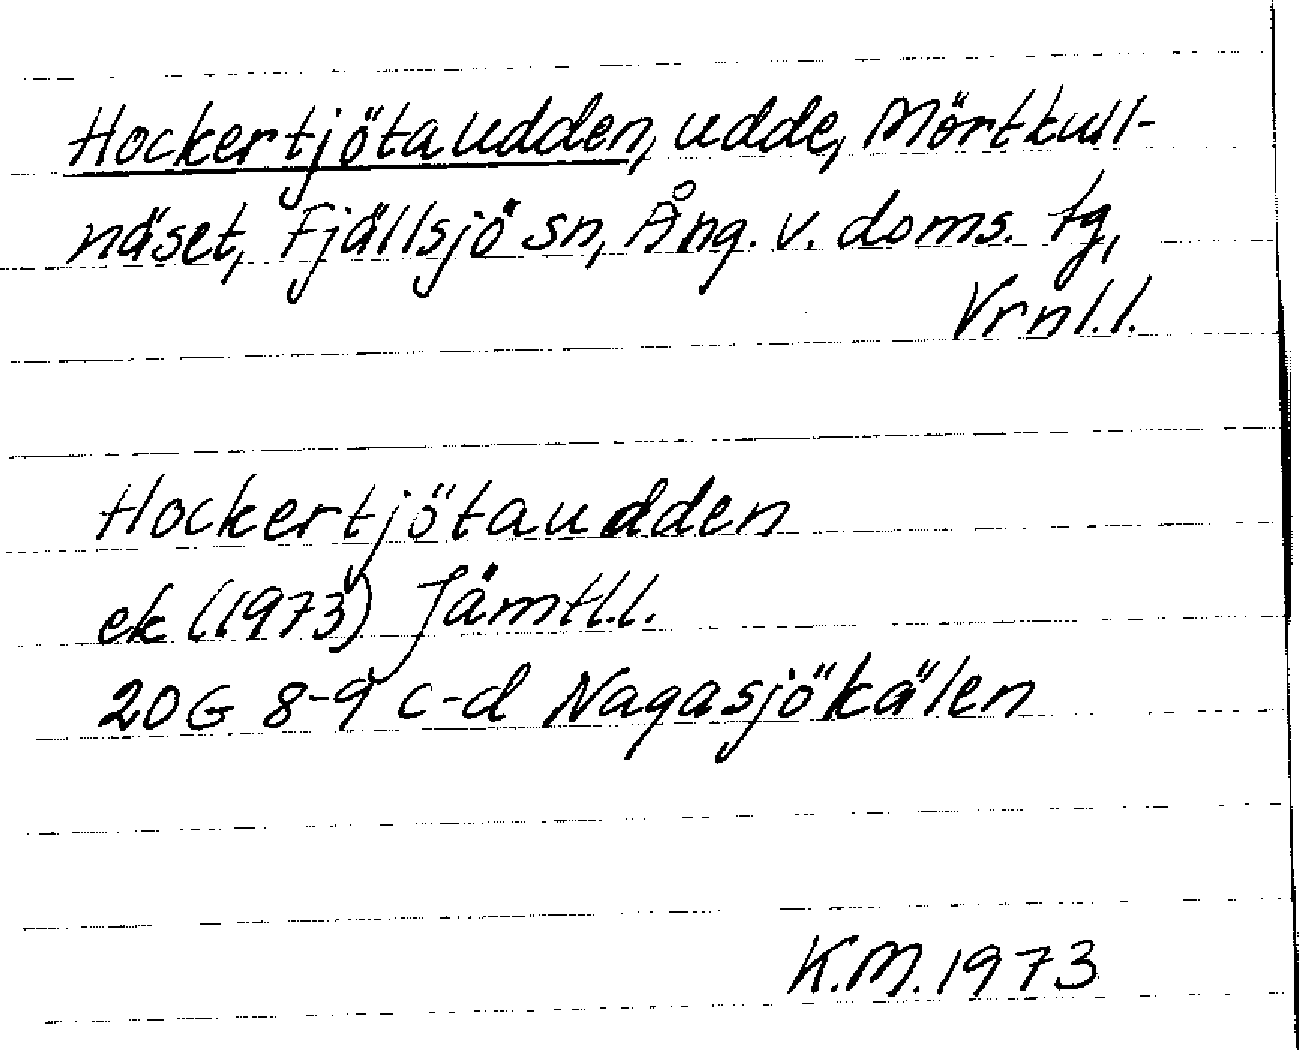 Hockertjötaudden, udde, Mörtkull-
näset, Fjällsjö sn, Ång. v. doms. tg,
Vrnl.l.
Hockertjötaudden
ek (1973) Jämtl.l.
20G 8-9 c-d Nagasjökälen
K.M. 1973